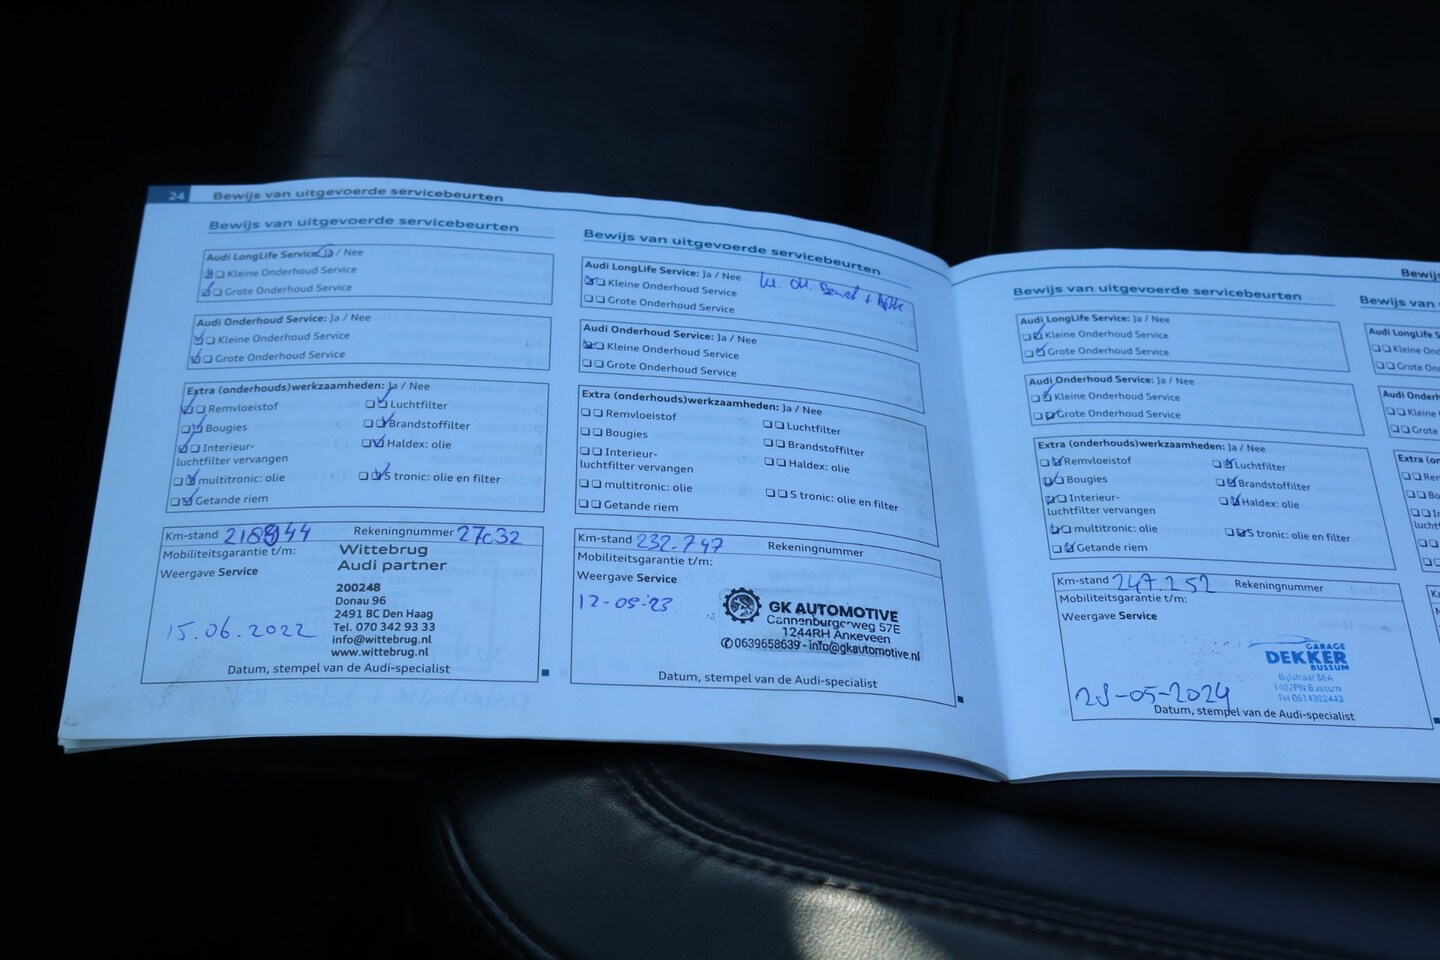 24 Bewijs van uitgevoerde servicebeurten
Bewijs van uitgevoerde servicebeurten
Audi LongLife Service: Ja / Nee
Kleine Onderhoud Service
Grote Onderhoud Service
Audi Onderhoud Service: Ja / Nee
Kleine Onderhoud Service
Grote Onderhoud Service
Extra (onderhouds)werkzaamheden: Ja / Nee
Remvloeistof Luchtfilter
Bougies Brandstoffilter
Interieur- Haldex: olie
luchtfilter vervangen
multitronic: olie S tronic: olie en filter
Getande riem
Km-stand Rekeningnummer 27032
Mobiliteitsgarantie t/m: Wittebrug
Audi partner
Weergave Service
200248
Donau 96
2491 BC Den Haag
Tel. 070 342 93 33
15.06.2022 info@wittebrug.nl
www.wittebrug.nl
Datum, stempel van de Audi-specialist
Bewijs van uitgevoerde servicebeurten
Audi LongLife Service: Ja / Nee
Kleine Onderhoud Service
Grote Onderhoud Service
Audi Onderhoud Service: Ja / Nee
Kleine Onderhoud Service
Grote Onderhoud Service
Extra (onderhouds)werkzaamheden: Ja / Nee
Remvloeistof Luchtfilter
Bougies Brandstoffilter
Interieur- Haldex: olie
luchtfilter vervangen
multitronic: olie S tronic: olie en filter
Getande riem
Km-stand 232.747 Rekeningnummer
Mobiliteitsgarantie t/m:
Weergave Service
12-05-23 GK AUTOMOTIVE
Cannenburgerweg 57E
1244RH Ankeveen
0639658639 - info@gkautomotive.nl
Datum, stempel van de Audi-specialist
Bewijs
Bewijs van uitgevoerde servicebeurten
Audi LongLife Service: Ja / Nee
Kleine Onderhoud Service
Grote Onderhoud Service
Audi Onderhoud Service: Ja / Nee
Kleine Onderhoud Service
Grote Onderhoud Service
Extra (onderhouds)werkzaamheden: Ja / Nee
Remvloeistof Luchtfilter
Bougies Brandstoffilter
Interieur- Haldex: olie
luchtfilter vervangen
multitronic: olie S tronic: olie en filter
Getande riem
Km-stand 247.252 Rekeningnummer
Mobiliteitsgarantie t/m:
Weergave Service
GARAGE
DEKKER
BUSSUM
Bijlstraat 86A
1402PN Bussum
28-05-2024 Tel 0614392443
Datum, stempel van de Audi-specialist
Bewijs van
Audi LongLife S
Kleine On
Grote On
Audi Onderh
Kleine
Grote
Extra (on